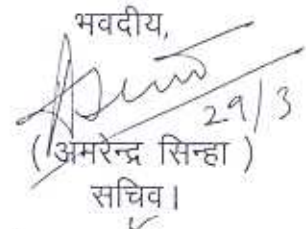 भवदीय,
29/3
(अमरेन्द्र सिन्हा )
सचिव।